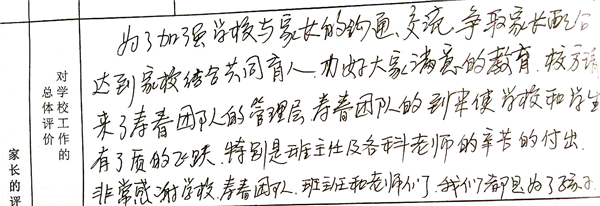 为了加强学校与家长的沟通、交流、争取家长配合
达到家校结合共同育人、办好大家满意的教育、校方请
来了寿春团队的管理层、寿春团队的到来使学校和学生
有了质的飞跃、特别是班主任及各科老师的辛苦的付出、
非常感谢学校、寿春团队、班主任和老师们了、我们都是为了孩子
对学校工作的
总体评价
家长的评